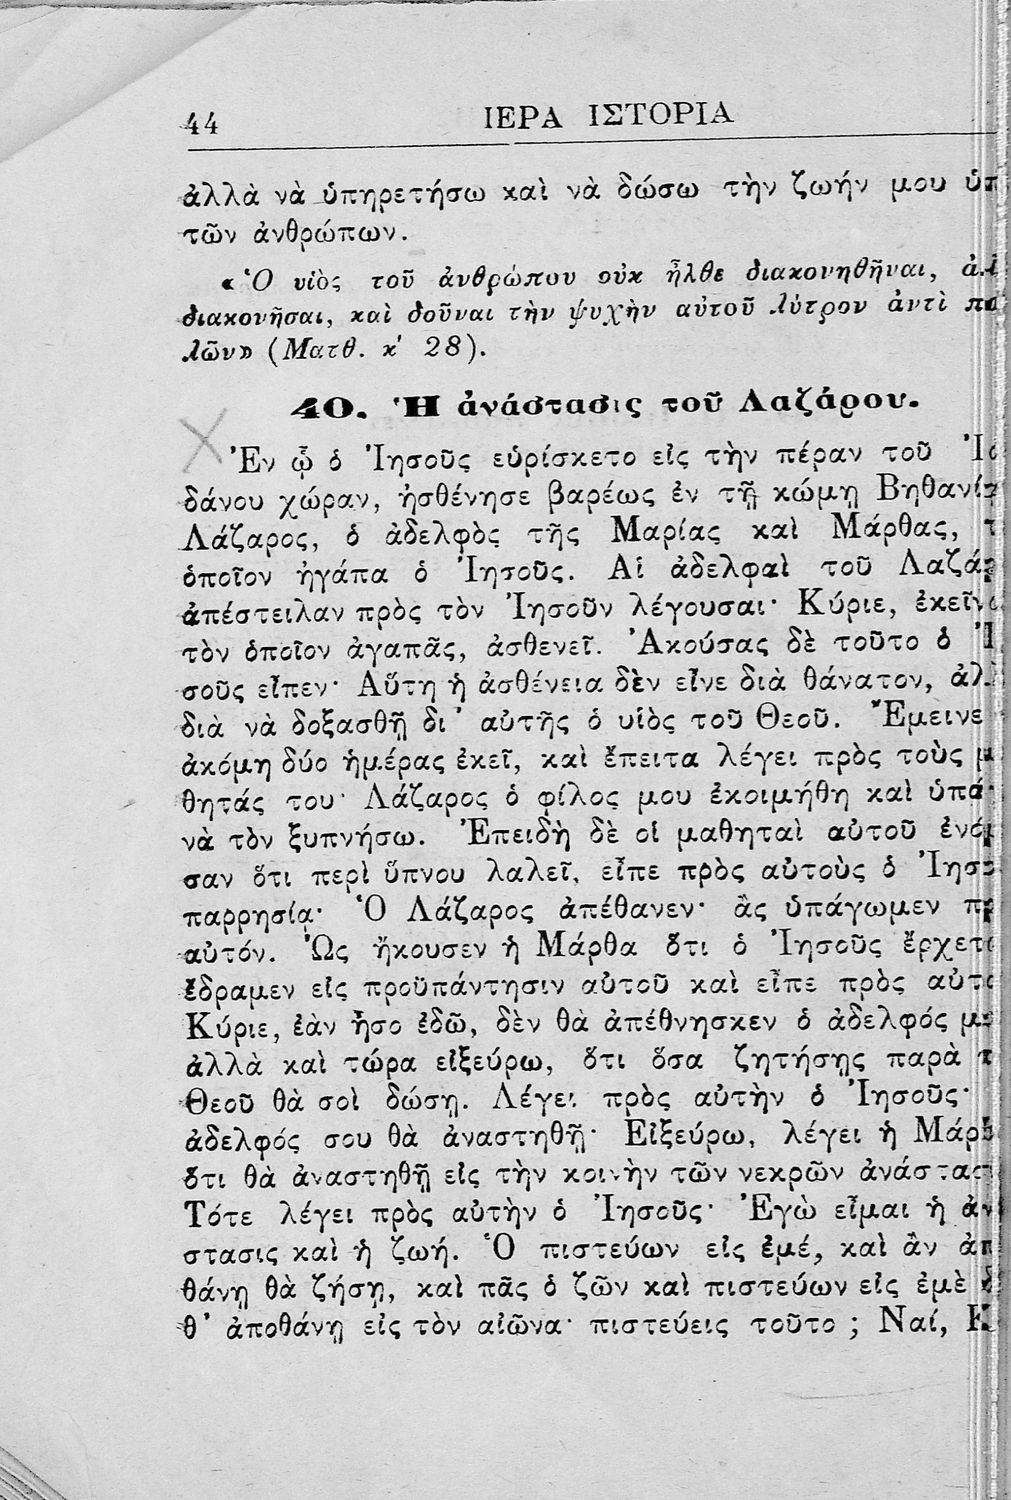 44 ΙΕΡΑ ΙΣΤΟΡΙΑ
ἀλλὰ νὰ ὑπηρετήσω καὶ νὰ δώσω τὴν ζωήν μου
τῶν ἀνθρώπων.
«Ὁ υἱὸς τοῦ ἀνθρώπου οὐκ ἦλθε διακονηθῆναι,
διακονῆσαι, καὶ δοῦναι τὴν ψυχὴν αὐτοῦ λύτρον ἀντὶ
λῶν» (Ματθ. κ' 28).
40. Ἡ ἀνάστασις τοῦ Λαζάρου.
Ἐν ᾧ ὁ Ἰησοῦς εὑρίσκετο εἰς τὴν πέραν τοῦ
δάνου χώραν, ἠσθένησε βαρέως ἐν τῇ κώμῃ Βηθανίᾳ
Λάζαρος, ὁ ἀδελφὸς τῆς Μαρίας καὶ Μάρθας,
ὁποῖον ἠγάπα ὁ Ἰησοῦς. Αἱ ἀδελφαὶ τοῦ
ἀπέστειλαν πρὸς τὸν Ἰησοῦν λέγουσαι· Κύριε,
τὸν ὁποῖον ἀγαπᾷς, ἀσθενεῖ. Ἀκούσας δὲ τοῦτο ὁ
σοῦς εἶπεν· Αὕτη ἡ ἀσθένεια δὲν εἶνε διὰ θάνατον,
διὰ νὰ δοξασθῇ δι' αὐτῆς ὁ υἱὸς τοῦ Θεοῦ. Ἔμεινε
ἀκόμη δύο ἡμέρας ἐκεῖ, καὶ ἔπειτα λέγει πρὸς τοὺς
θητάς του· Λάζαρος ὁ φίλος μου ἐκοιμήθη καὶ
νὰ τὸν ξυπνήσω. Ἐπειδὴ δὲ οἱ μαθηταὶ αὐτοῦ
σαν ὅτι περὶ ὕπνου λαλεῖ, εἶπε πρὸς αὐτοὺς ὁ
παρρησίᾳ· Ὁ Λάζαρος ἀπέθανεν· ἂς ὑπάγωμεν
αὐτόν. Ὡς ἤκουσεν ἡ Μάρθα ὅτι ὁ Ἰησοῦς
ἔδραμεν εἰς προϋπάντησιν αὐτοῦ καὶ εἶπε πρὸς
Κύριε, ἐὰν ἦσο ἐδῶ, δὲν θὰ ἀπέθνησκεν ὁ ἀδελφός
ἀλλὰ καὶ τώρα εἰξεύρω, ὅτι ὅσα ζητήσῃς παρὰ
Θεοῦ θὰ σοὶ δώσῃ. Λέγει πρὸς αὐτὴν ὁ Ἰησοῦς·
ἀδελφός σου θὰ ἀναστηθῇ· Εἰξεύρω, λέγει ἡ
ὅτι θὰ ἀναστηθῇ εἰς τὴν κοινὴν τῶν νεκρῶν
Τότε λέγει πρὸς αὐτὴν ὁ Ἰησοῦς· Ἐγὼ εἶμαι ἡ
στασις καὶ ἡ ζωή. Ὁ πιστεύων εἰς ἐμέ, καὶ ἂν
θάνῃ θὰ ζήσῃ, καὶ πᾶς ὁ ζῶν καὶ πιστεύων εἰς ἐμὲ
θ' ἀποθάνῃ εἰς τὸν αἰῶνα· πιστεύεις τοῦτο ; Ναί,